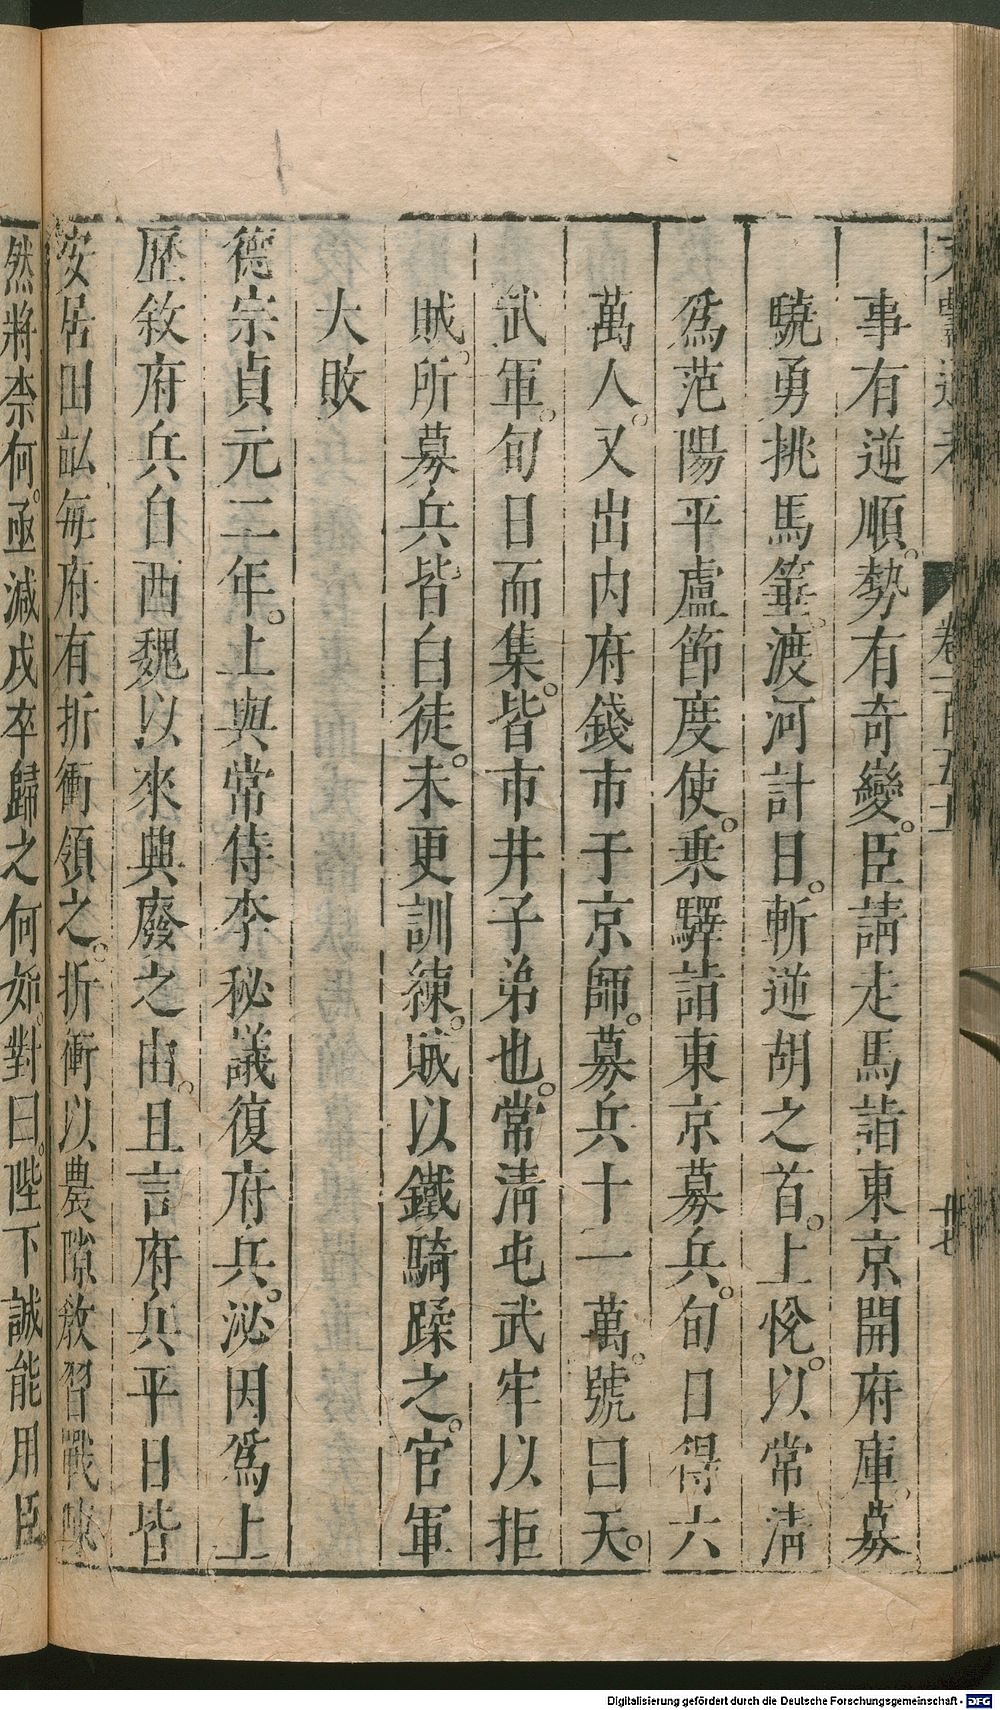 事有逆順。勢有奇變。臣請走馬詣東京開府庫。募
驍勇挑馬箠。渡河計日。斬逆胡之首。上悅。以常淸
爲范陽平盧節度使。乗驛詣東京募兵。旬日得六
萬人。又出内府錢市于京師。募兵十一萬。號曰天。
武軍。旬日而集。皆市井子弟也。常淸屯武牢以拒
賊。所募兵。皆白徒。未更訓練。賊以鐵騎蹂之。官軍
大敗
德宗貞元二年。上與常侍李秘議復府兵。泌因爲上
歷敘府兵自西魏以來興廢之由。且言府兵平日皆
安居田畝每府有折衝領之。折衝以農隙敎習戰陳
然將柰何。亟減戍卒歸之何如。對曰。陛下誠能用臣
卷一百五十
廿七
Digitalisierung gefördert durch die Deutsche Forschungsgemeinschaft - DFG